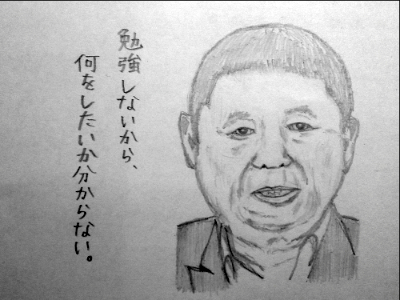 勉強しないから、
何をしたいか分からない。